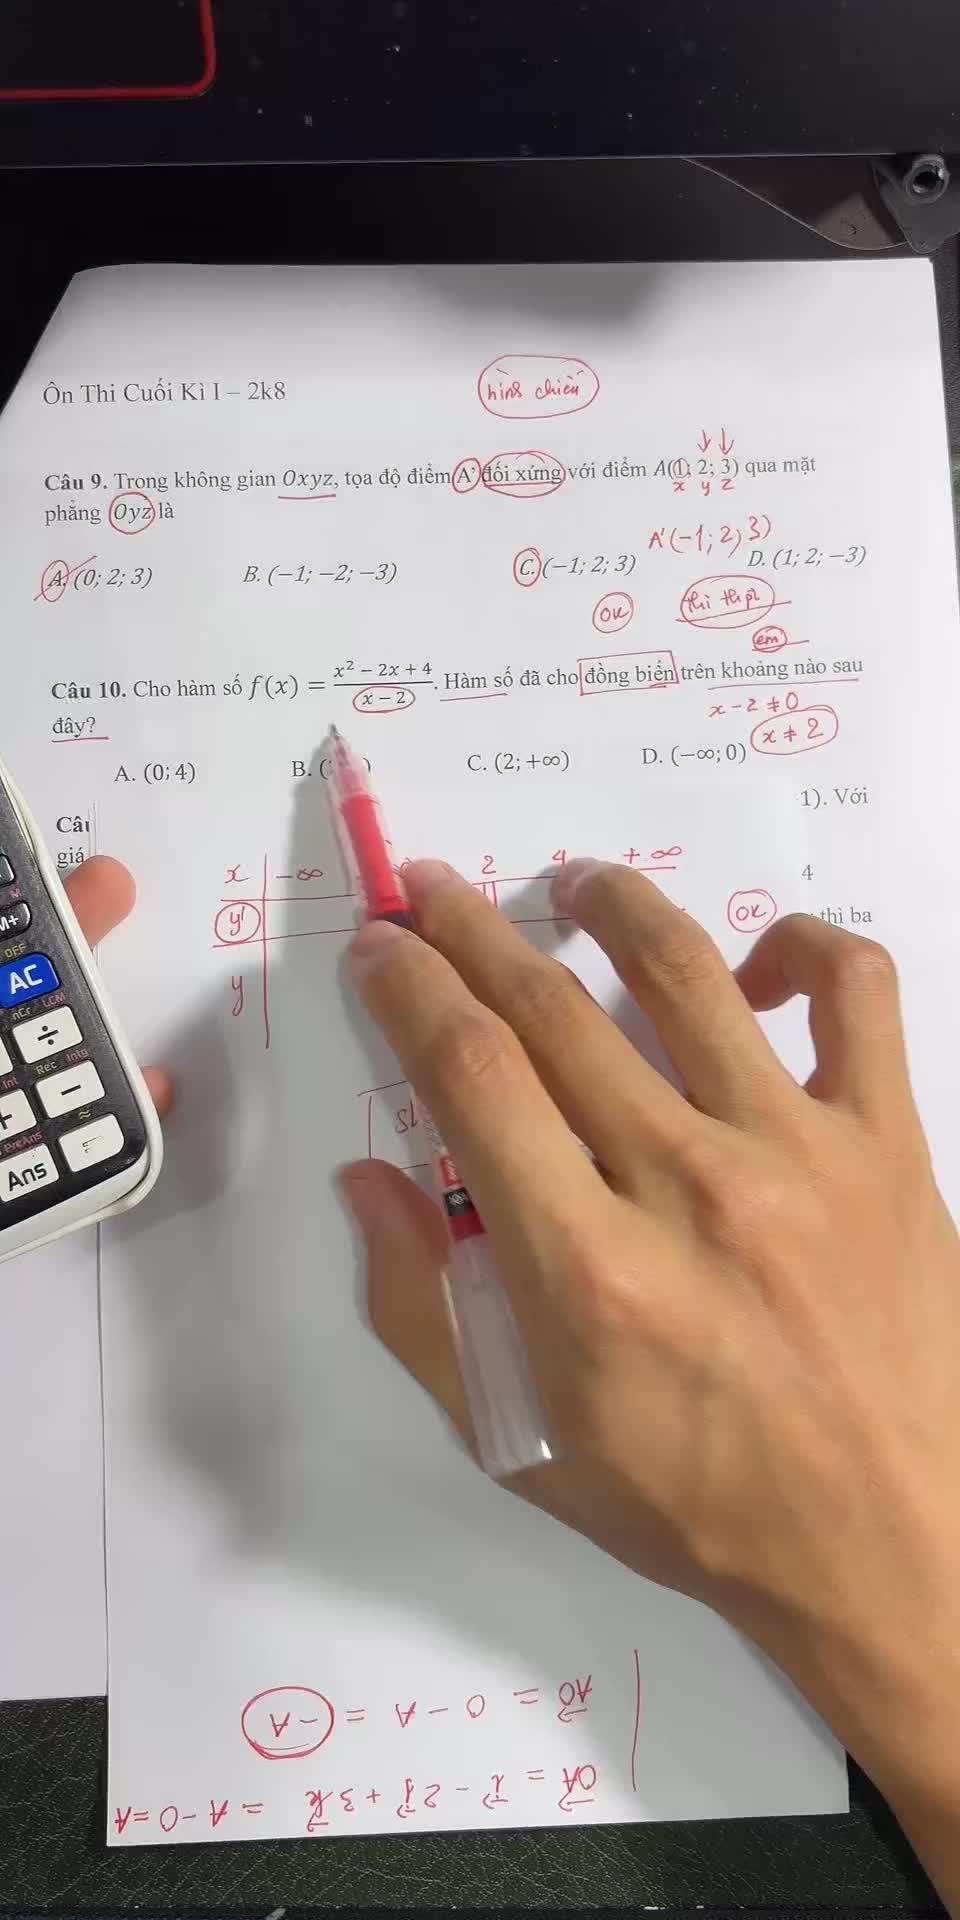 Ôn Thi Cuối Kì I – 2k8
hình chiếu
Câu 9. Trong không gian Oxyz, tọa độ điểm A' đối xứng với điểm A(1; 2; 3) qua mặt
x y z
phẳng Oyz là
A'(-1; 2; 3)
A. (0; 2; 3) B. (−1; −2; −3) C. (−1; 2; 3) D. (1; 2; −3)
OK
em
Câu 10. Cho hàm số f(x) = (x² − 2x + 4)/(x − 2). Hàm số đã cho đồng biến trên khoảng nào sau
đây?
x - 2 ≠ 0
x ≠ 2
A. (0; 4) B. ( ) C. (2; +∞) D. (−∞; 0)
1). Với
giá
x -∞ 2 4 +∞
4
y'
OK
thì ba
y
M+
OFF
AC
nCr LCM
÷
Int Rec Intg
+ −
PreAns ≈
Ans =
AO = O - A = -A
OA = i - 2j + 3k = A - O = A